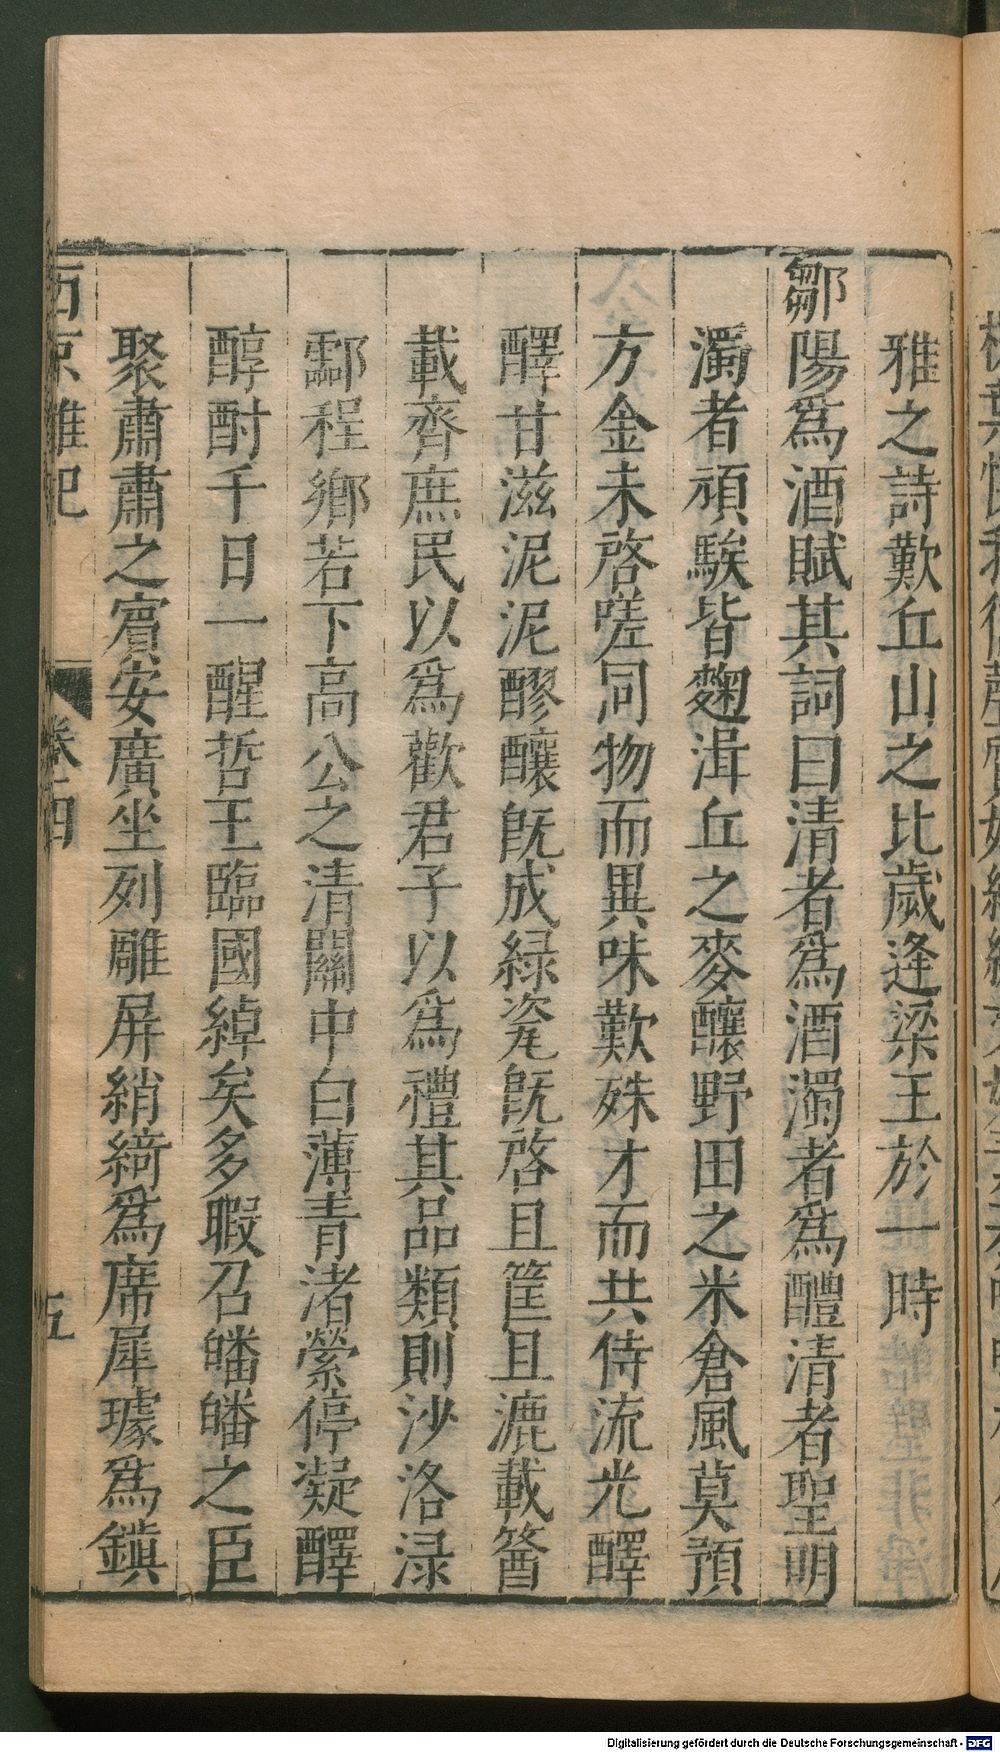 雅之詩歎丘山之比歲逢梁王於一時
鄒陽爲酒賦其詞曰清者爲酒濁者爲醴清者聖明
濁者頑騃皆麴湒丘之麥釀野田之米倉風莫預
方金未啓嗟同物而異味歎殊才而共侍流光醳
醳甘滋泥泥醪釀旣成綠瓷旣啓且筐且漉載篘
載齊庶民以爲歡君子以爲禮其品類則沙洛渌
酃程鄉若下高公之清關中白薄青渚縈停凝醳
醇酎千日一醒哲王臨國綽矣多暇召皤皤之臣
聚肅肅之賓安廣坐列雕屏綃綺爲席犀璩爲鎭
西京雜記
卷四
五
Digitalisierung gefördert durch die Deutsche Forschungsgemeinschaft - DFG